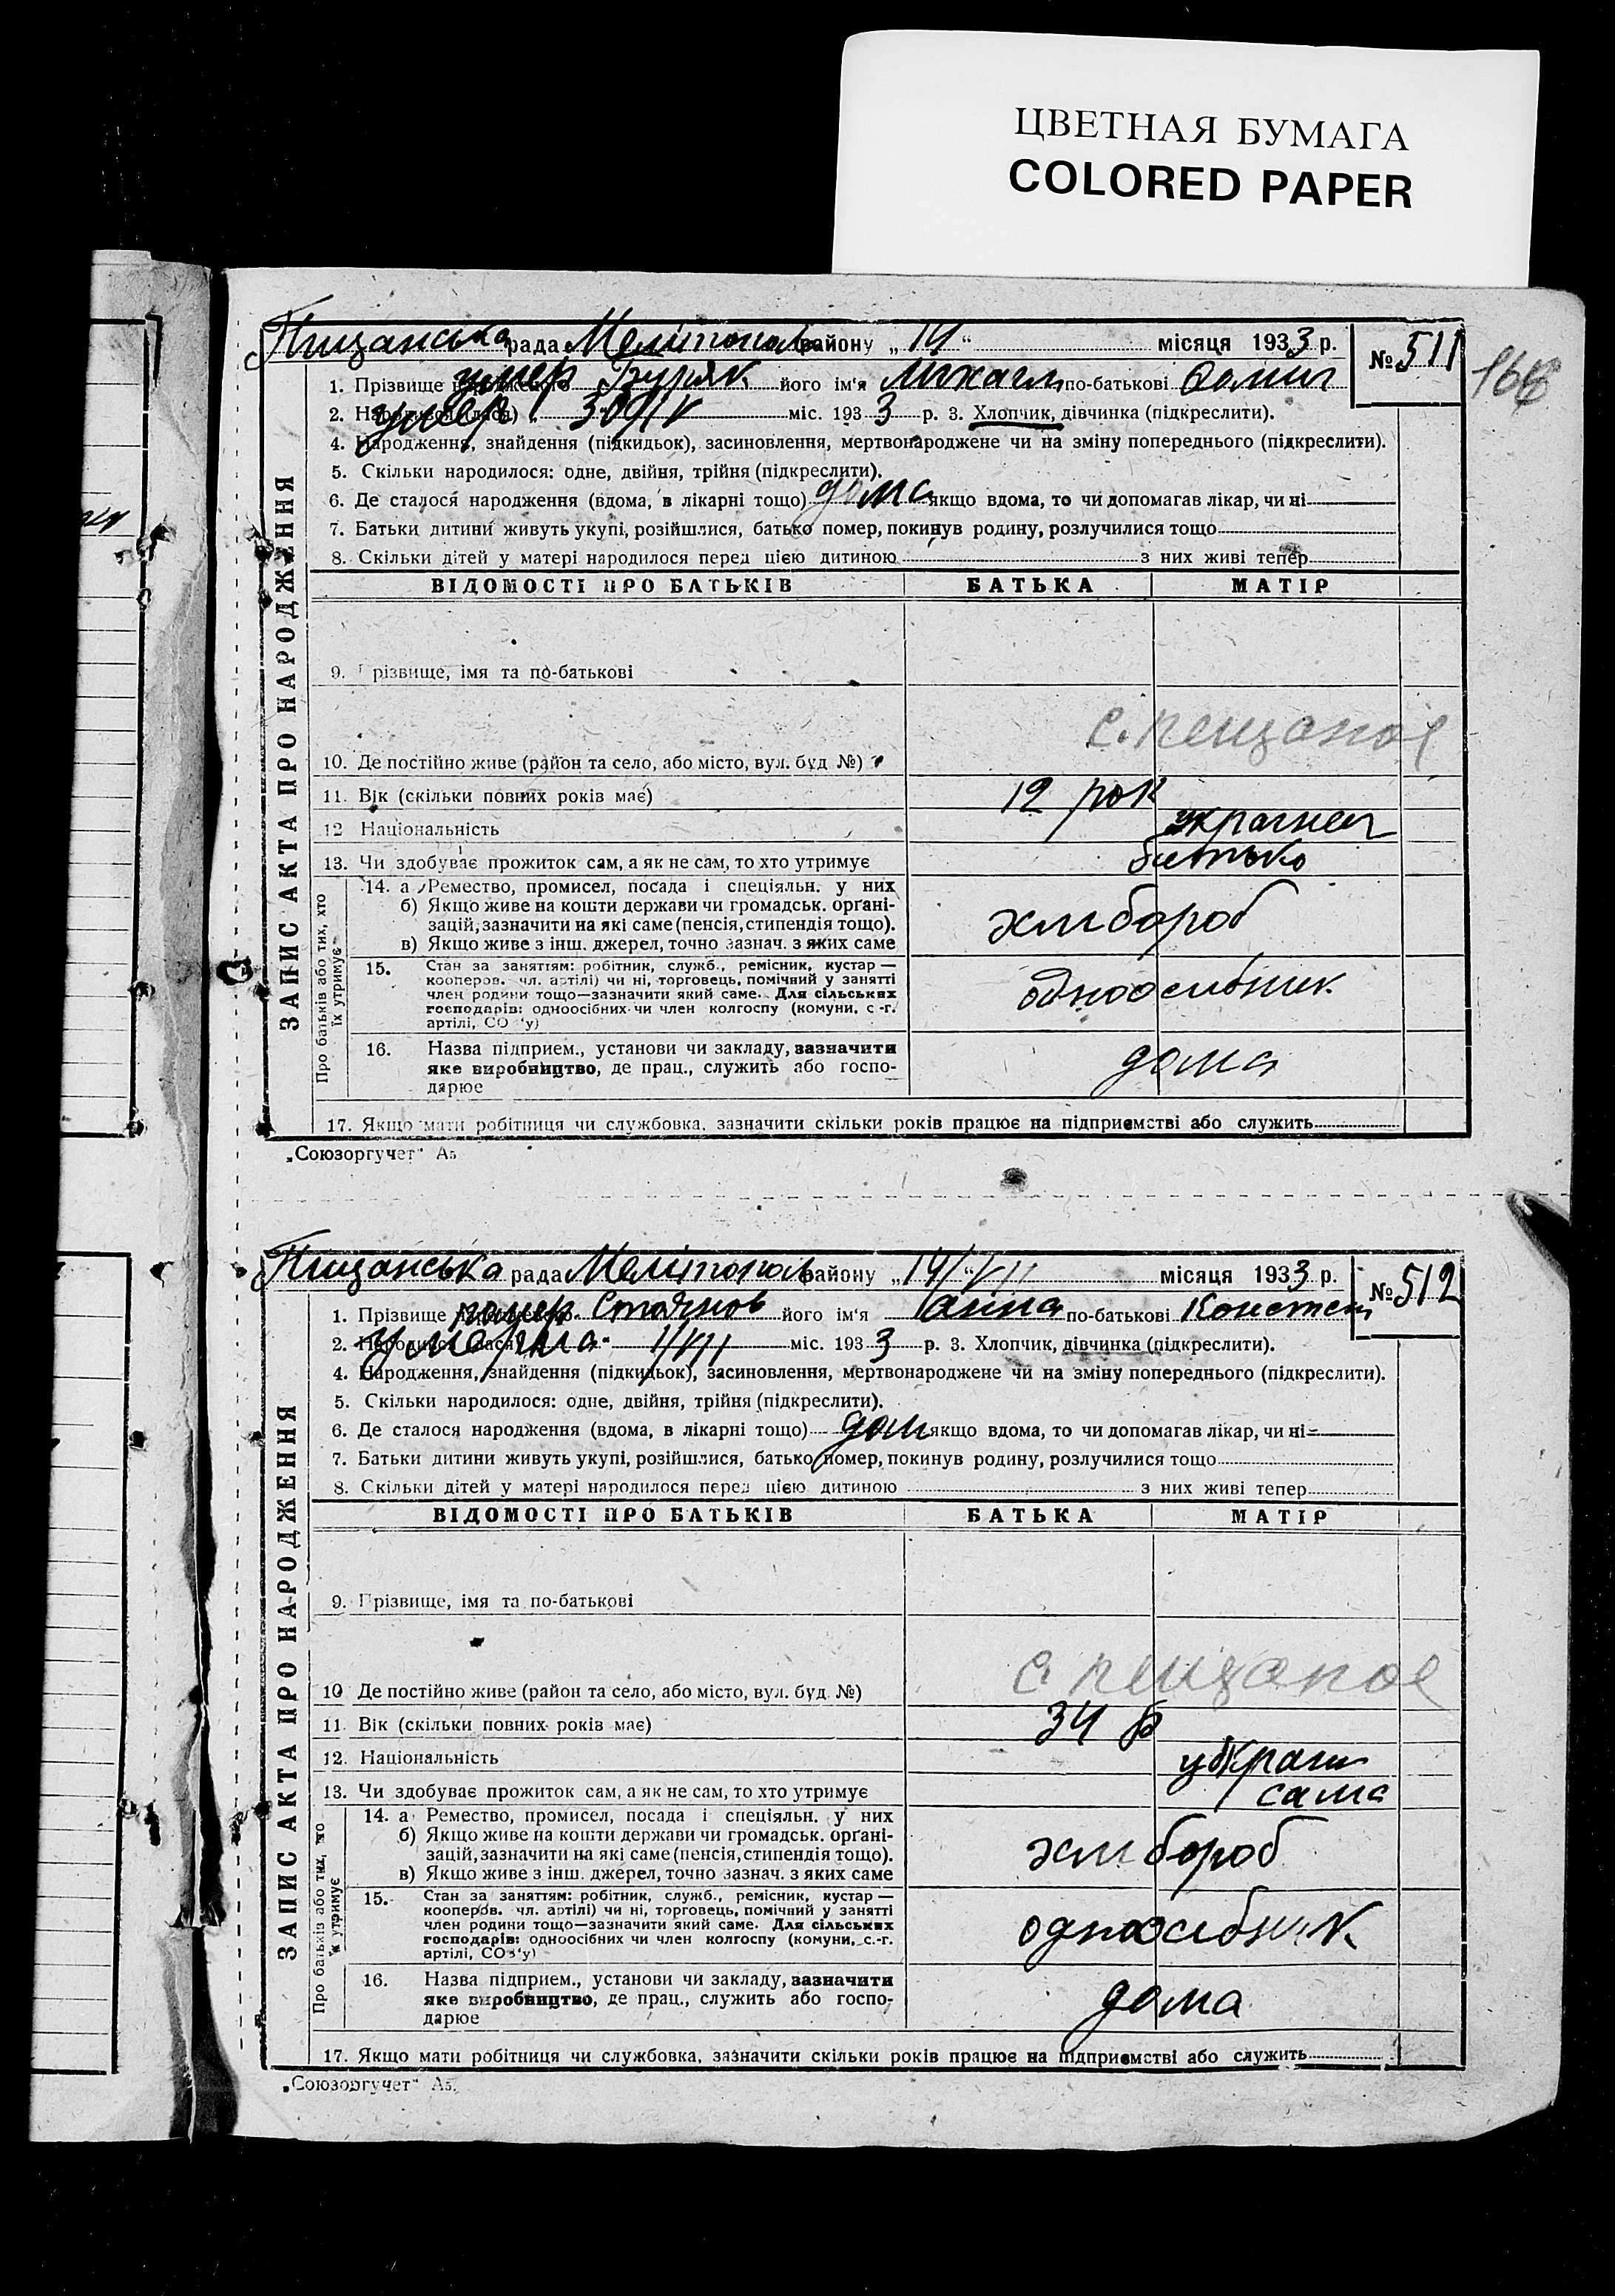 ЦВЕТНАЯ БУМАГА
COLORED PAPER
Пищанська рада Мелітополь району „14“ місяця 1933 р. № 511
168
1. Прізвище умер Буряк його ім'я Михаел по-батькові
2. умер 30/IV міс. 1933 р. 3. Хлопчик, дівчинка (підкреслити).
4. Народження, знайдення (підкидьок), засиновлення, мертвонароджене чи на зміну попереднього (підкреслити).
5. Скільки народилося: одне, двійня, трійня (підкреслити).
6. Де сталося народження (вдома, в лікарні тощо) дома якщо вдома, то чи допомагав лікар, чи ні
7. Батьки дитини живуть укупі, розійшлися, батько помер, покинув родину, розлучилися тощо
8. Скільки дітей у матері народилося перед цією дитиною з них живі тепер
ЗАПИС АКТА ПРО НАРОДЖЕННЯ
ВІДОМОСТІ ПРО БАТЬКІВ БАТЬКА МАТІР
9. Прізвище, імя та по-батькові
с. пещаное
10. Де постійно живе (район та село, або місто, вул. буд №)
11. Вік (скільки повних років має) 12 рок
12 Національність украинец
13. Чи здобуває прожиток сам, а як не сам, то хто утримує батько
Про батьків або тих, хто їх утримує
14. а Ремество, промисел, посада і спеціяльн. у них
б) Якщо живе на кошти держави чи громадськ. орґані-
зацій, зазначити на які саме (пенсія, стипендія тощо). хлибороб
в) Якщо живе з інш. джерел, точно зазнач. з яких саме
15. Стан за заняттям: робітник, служб., ремісник, кустар —
кооперов. чл. артілі) чи ні, торговець, помічний у занятті
член родини тощо—зазначити який саме. Для сільських одноосибник
господарів: одноосібних чи член колгоспу (комуни, с-г.
артілі, СОЗ'у)
16. Назва підприєм., установи чи закладу, зазначити
яке виробництво, де прац., служить або госпо- дома
дарює
17. Якщо мати робітниця чи службовка, зазначити скільки років працює на підприємстві або служить
„Союзоргучет“ А5
Пищанська рада Мелітополь району „14/VII“ місяця 1933 р. № 512
1. Прізвище помер Стоянов його ім'я анна по-батькові Констент
2. умерла 1/VII міс. 1933 р. 3. Хлопчик, дівчинка (підкреслити).
4. Народження, знайдення (підкидьок), засиновлення, мертвонароджене чи на зміну попереднього (підкреслити).
5. Скільки народилося: одне, двійня, трійня (підкреслити).
6. Де сталося народження (вдома, в лікарні тощо) дом якщо вдома, то чи допомагав лікар, чи ні
7. Батьки дитини живуть укупі, розійшлися, батько помер, покинув родину, розлучилися тощо
8. Скільки дітей у матері народилося перед цією дитиною з них живі тепер
ЗАПИС АКТА ПРО НАРОДЖЕННЯ
ВІДОМОСТІ ПРО БАТЬКІВ БАТЬКА МАТІР
9. Прізвище, імя та по-батькові
с. пещаное
10 Де постійно живе (район та село, або місто, вул. буд. №)
11. Вік (скільки повних років має) 34 р
12. Національність украин
13. Чи здобуває прожиток сам, а як не сам, то хто утримує сама
Про батьків або тих, хто їх утримує
14. а Ремество, промисел, посада і спеціяльн. у них
б) Якщо живе на кошти держави чи громадськ. орґані-
зацій, зазначити на які саме (пенсія, стипендія тощо). хлибороб
в) Якщо живе з інш. джерел, точно зазнач. з яких саме
15. Стан за заняттям: робітник, служб., ремісник, кустар —
кооперов. чл. артілі) чи ні, торговець, помічний у занятті
член родини тощо—зазначити який саме. Для сільських одноосибник
господарів: одноосібних чи член колгоспу (комуни, с.-г.
артілі, СОЗ'у)
16. Назва підприєм., установи чи закладу, зазначити
яке виробництво, де прац., служить або госпо- дома
дарює
17. Якщо мати робітниця чи службовка, зазначити скільки років працює на підприємстві або служить
„Союзоргучет“ А5.